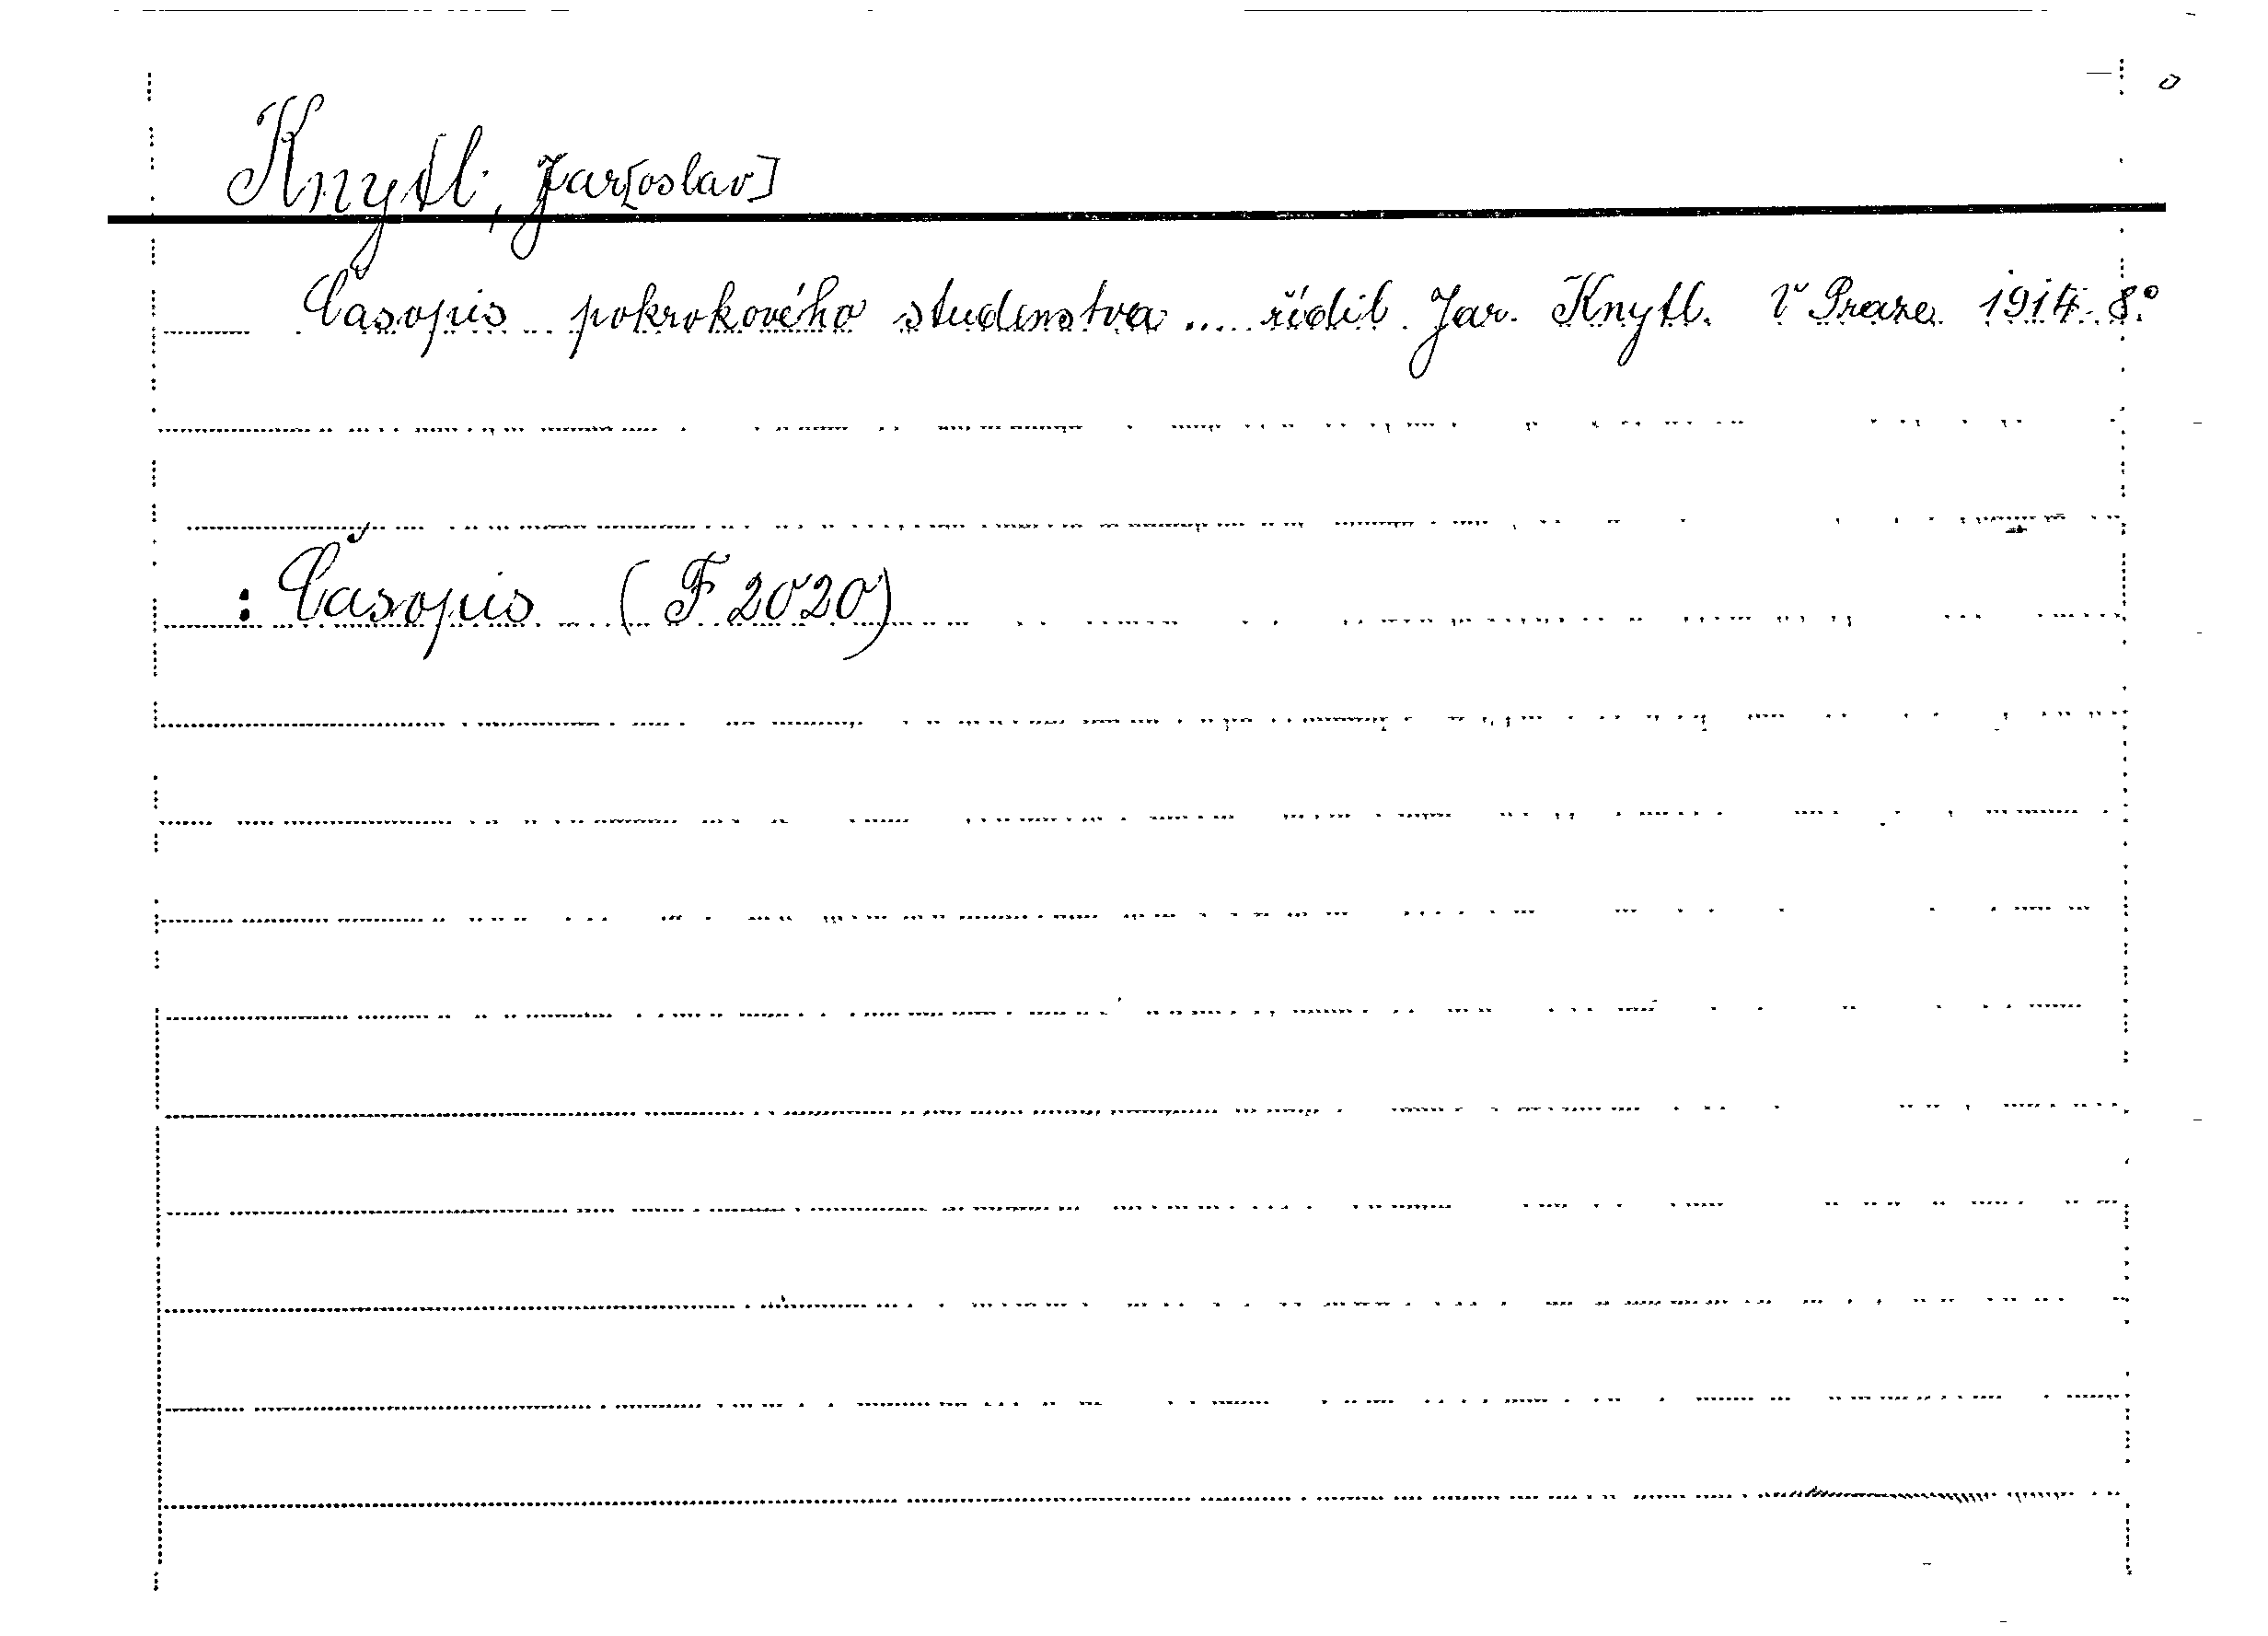 Knytl, Jar[oslav]
Časopis pokrokového studenstva .... řídil Jar. Knytl. V Praze 1914. 8°
: Časopis (F 2020)